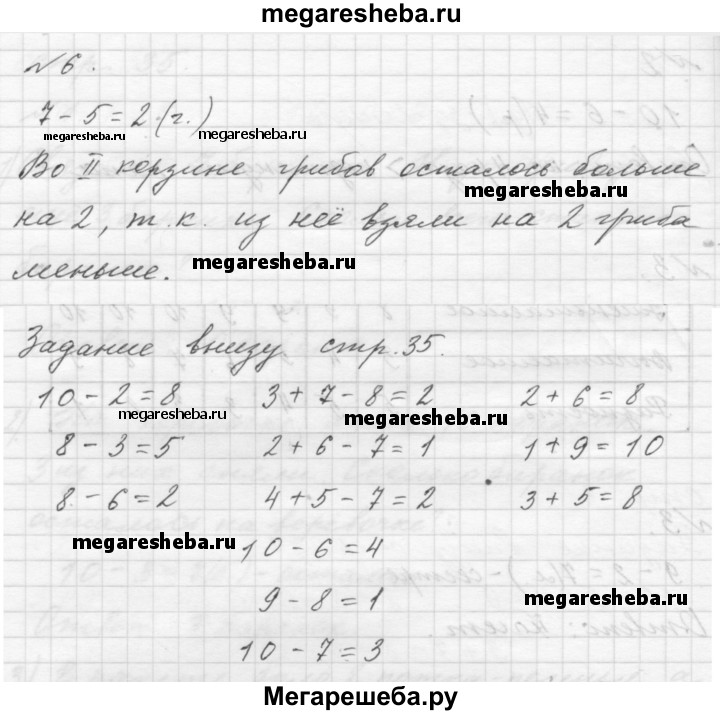 megaresheba.ru
№6.
7 - 5 = 2 (г.)
megaresheba.ru megaresheba.ru
Во II корзине грибов осталось больше
megaresheba.ru
на 2, т.к. из неё взяли на 2 гриба
меньше. megaresheba.ru
Задание внизу стр. 35.
10 - 2 = 8 3 + 7 - 8 = 2 2 + 6 = 8
megaresheba.ru megaresheba.ru
8 - 3 = 5 2 + 6 - 7 = 1 1 + 9 = 10
8 - 6 = 2 4 + 5 - 7 = 2 3 + 5 = 8
megaresheba.ru 10 - 6 = 4
9 - 8 = 1 megaresheba.ru
10 - 7 = 3
Мегарешеба.ру